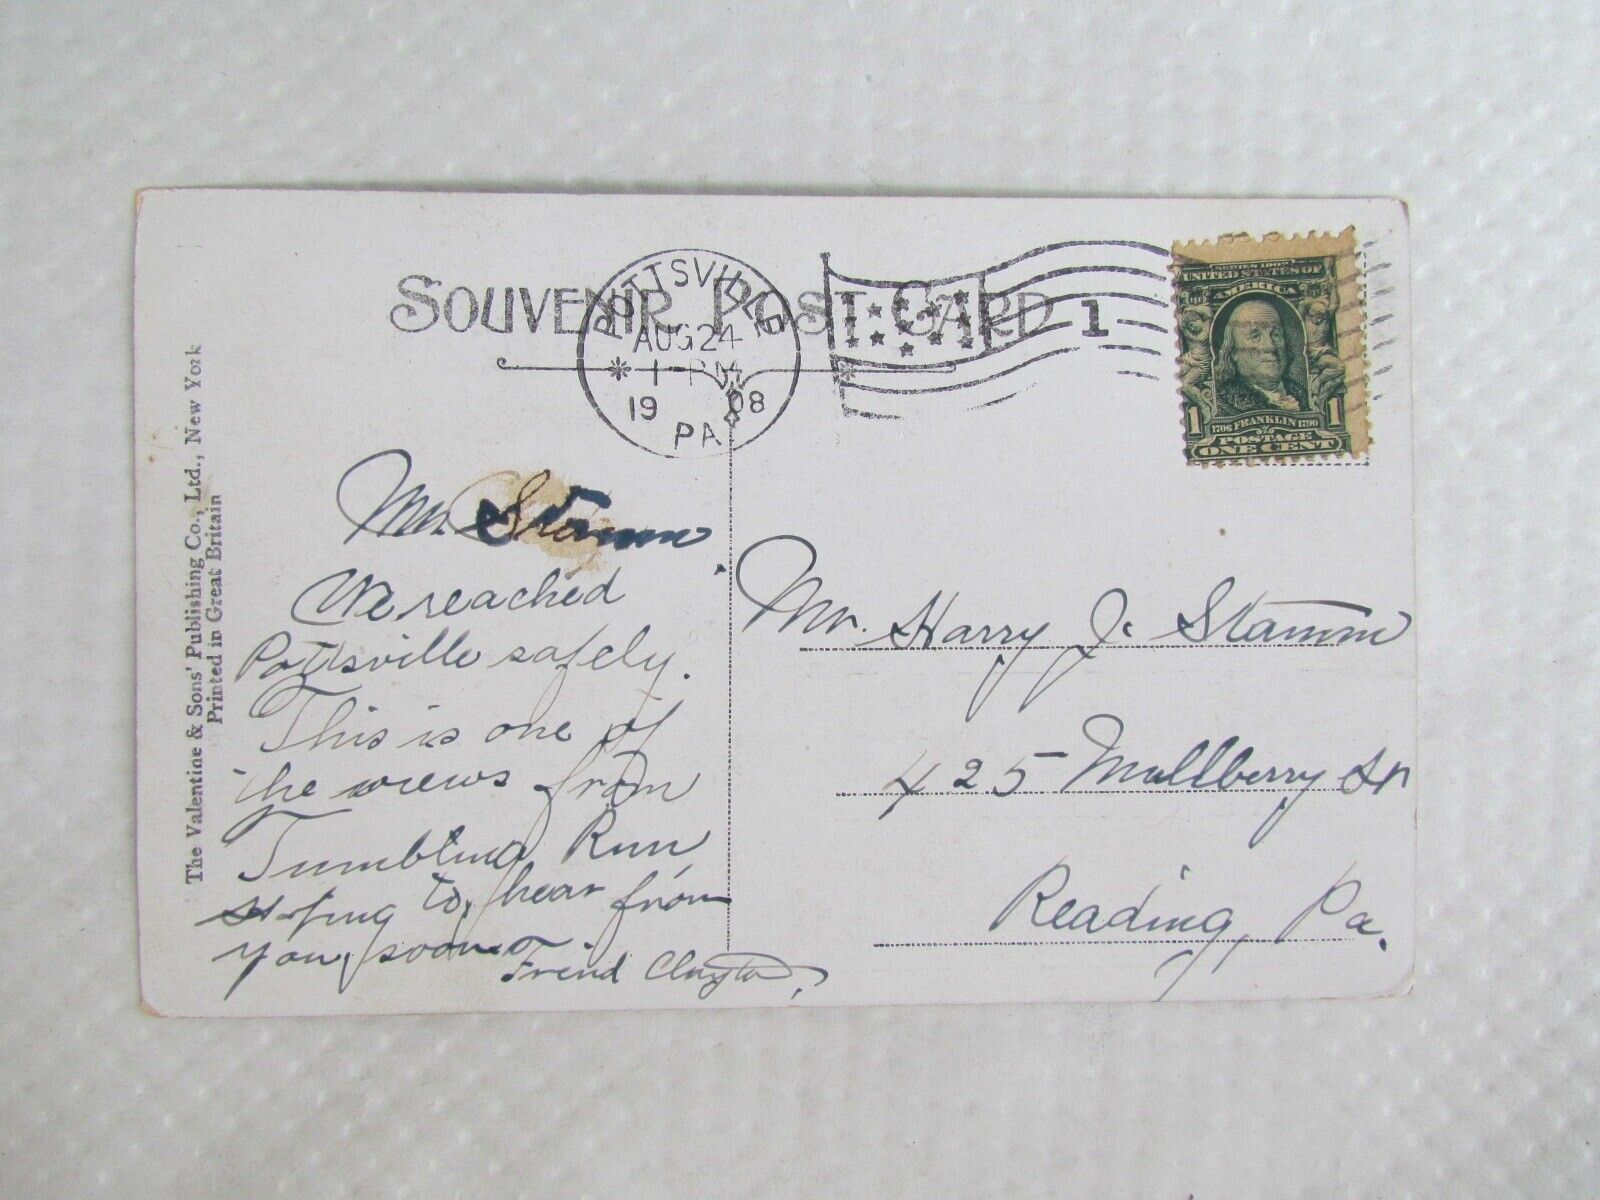 SOUVENIR POST CARD
POTTSVILLE
AUG 24
1-PM
1908
PA
1
SERIES 1902
UNITED STATES OF
AMERICA
1706 FRANKLIN 1790
1 1
POSTAGE
ONE CENT
The Valentine & Sons' Publishing Co., Ltd., New York
Printed in Great Britain
Mr. Stamm
We reached
Pottsville safely.
This is one of
the views from
Tumbling Run
Hoping to hear from
you, soon
Freind Clayton
Mr. Harry J. Stamm
425 Mullberry St
Reading, Pa.